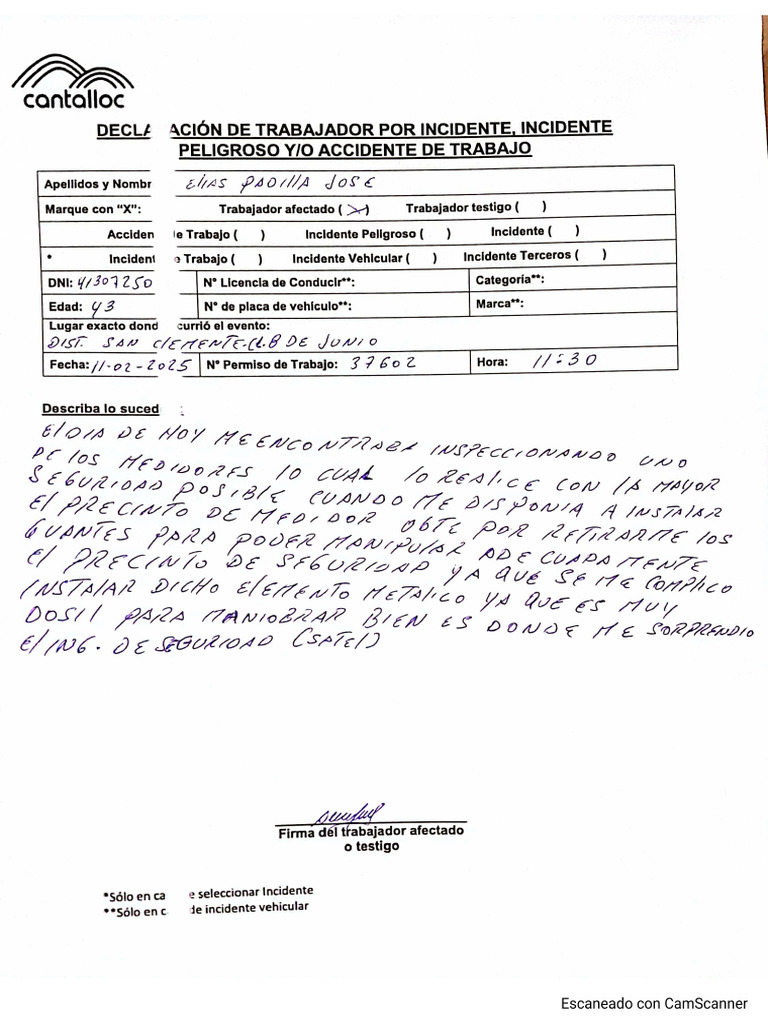 cantalloc
DECLA ACIÓN DE TRABAJADOR POR INCIDENTE, INCIDENTE
PELIGROSO Y/O ACCIDENTE DE TRABAJO
Apellidos y Nombr ElIAS PADIllA JOSE
Marque con "X": Trabajador afectado ( X ) Trabajador testigo ( )
Acciden e Trabajo ( ) Incidente Peligroso ( ) Incidente ( )
* Incident e Trabajo ( ) Incidente Vehicular ( ) Incidente Terceros ( )
DNI: 41307250 N° Licencia de Conducir**: Categoría**:
Edad: 43 N° de placa de vehículo**: Marca**:
Lugar exacto dond currió el evento:
DIST. SAN ClEMENTE. DE JUNIO
Fecha: 11-02-2025 N° Permiso de Trabajo: 37602 Hora: 11:30
Describa lo suced :
El DIA DE HOY ME ENCONTRABA INSPECCIONANDO UNO
DE lOS MEDIDORES lO CUAL lO REALICE CON lA MAYOR
SEGURIDAD POSIBLE CUANDO ME DISPONIA A INSTALAR
El PRECINTO DE MEDIDOR OBTE POR RETIRARME lOS
GUANTES PARA PODER MANIPULAR ADECUADAMENTE
El PRECINTO DE SEGURIDAD YA QUE SE ME COMPLICO
INSTALAR DICHO ElEMENTO METALICO YA QUE ES MUY
DOSIl PARA MANIOBRAR BIEN ES DONDE ME SORPRENDIO
El ING. DE SEGURIDAD (SATEl)
Firma del trabajador afectado
o testigo
*Sólo en ca e seleccionar Incidente
**Sólo en c de incidente vehicular
Escaneado con CamScanner